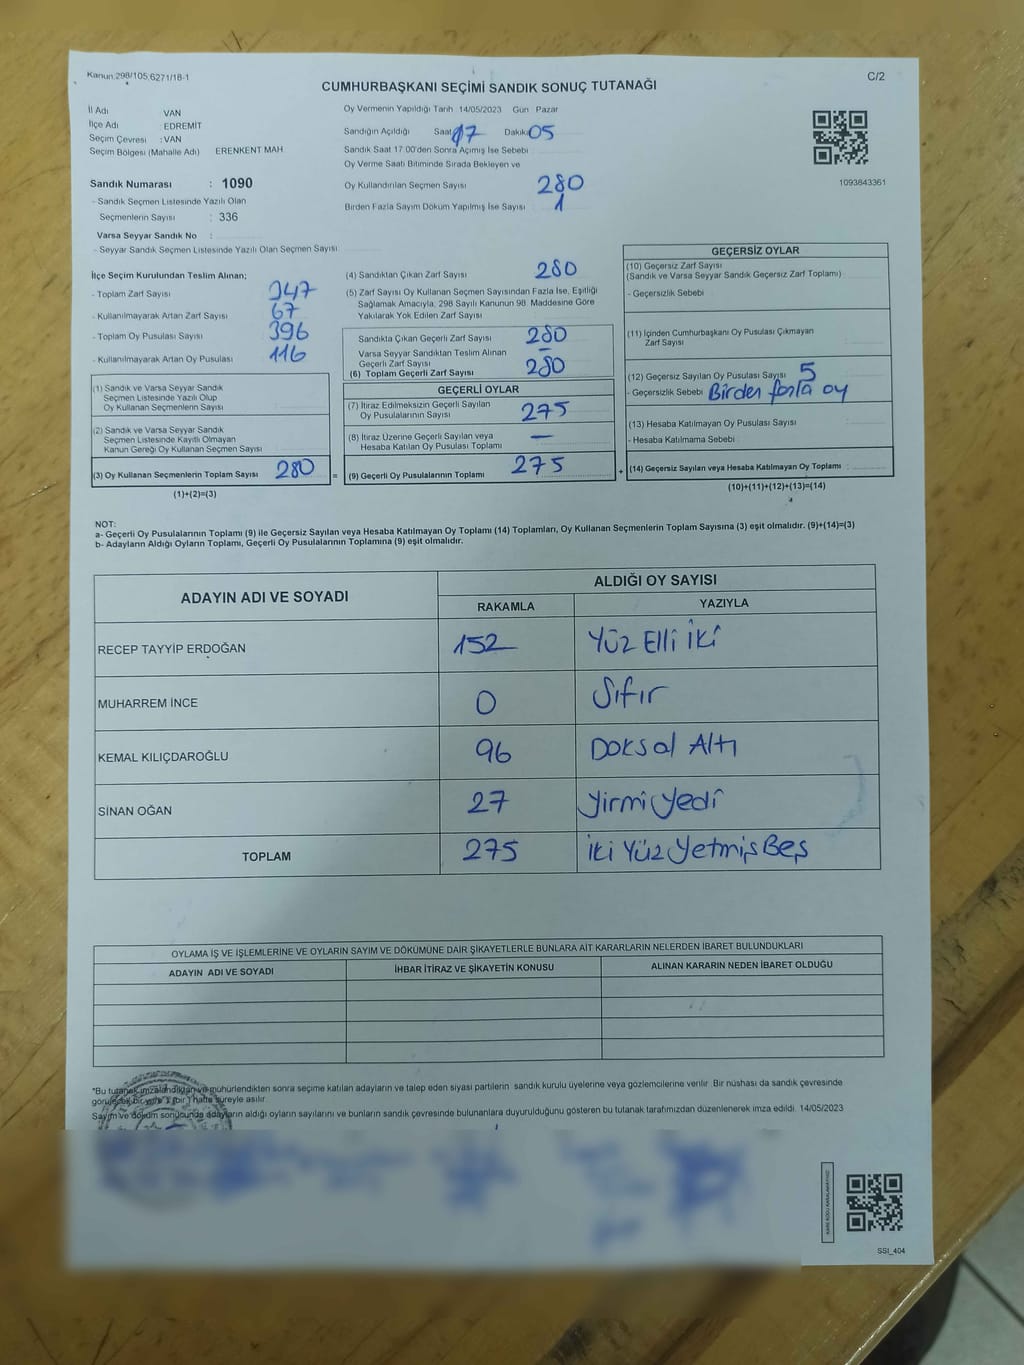 Kanun.298/105,6271/18-1
C/2
CUMHURBAŞKANI SEÇİMİ SANDIK SONUÇ TUTANAĞI
İl Adı VAN
İlçe Adı EDREMIT
Seçim Çevresi : VAN
Seçim Bölgesi (Mahalle Adı) ERENKENT MAH
Sandık Numarası : 1090
- Sandık Seçmen Listesinde Yazılı Olan
Seçmenlerin Sayısı : 336
Varsa Seyyar Sandık No :
- Seyyar Sandık Seçmen Listesinde Yazılı Olan Seçmen Sayısı:
Oy Vermenin Yapıldığı Tarih 14/05/2023 Gün Pazar
Sandığın Açıldığı Saat 17 Dakika 05
Sandık Saat 17:00'den Sonra Açılmış İse Sebebi
Oy Verme Saati Bitiminde Sırada Bekleyen ve
Oy Kullandırılan Seçmen Sayısı 280
Birden Fazla Sayım Döküm Yapılmış İse Sayısı 1
1093843361
İlçe Seçim Kurulundan Teslim Alınan;
- Toplam Zarf Sayısı 347
- Kullanılmayarak Artan Zarf Sayısı 67
- Toplam Oy Pusulası Sayısı 396
- Kullanılmayarak Artan Oy Pusulası 116
(1) Sandık ve Varsa Seyyar Sandık
Seçmen Listesinde Yazılı Olup
Oy Kullanan Seçmenlerin Sayısı
(2) Sandık ve Varsa Seyyar Sandık
Seçmen Listesinde Kayıtlı Olmayan
Kanun Gereği Oy Kullanan Seçmen Sayısı
(3) Oy Kullanan Seçmenlerin Toplam Sayısı 280 =
(1)+(2)=(3)
(4) Sandıktan Çıkan Zarf Sayısı 280
(5) Zarf Sayısı Oy Kullanan Seçmen Sayısından Fazla İse, Eşitliği
Sağlamak Amacıyla, 298 Sayılı Kanunun 98. Maddesine Göre
Yakılarak Yok Edilen Zarf Sayısı
Sandıkta Çıkan Geçerli Zarf Sayısı 280
Varsa Seyyar Sandıktan Teslim Alınan
Geçerli Zarf Sayısı –
(6) Toplam Geçerli Zarf Sayısı 280
GEÇERLİ OYLAR
(7) İtiraz Edilmeksizin Geçerli Sayılan
Oy Pusulalarının Sayısı 275
(8) İtiraz Üzerine Geçerli Sayılan veya
Hesaba Katılan Oy Pusulası Toplamı —
(9) Geçerli Oy Pusulalarının Toplamı 275 +
GEÇERSİZ OYLAR
(10) Geçersiz Zarf Sayısı
(Sandık ve Varsa Seyyar Sandık Geçersiz Zarf Toplamı)
- Geçersizlik Sebebi
(11) İçinden Cumhurbaşkanı Oy Pusulası Çıkmayan
Zarf Sayısı
(12) Geçersiz Sayılan Oy Pusulası Sayısı 5
- Geçersizlik Sebebi Birden fazla oy
(13) Hesaba Katılmayan Oy Pusulası Sayısı
- Hesaba Katılmama Sebebi
(14) Geçersiz Sayılan veya Hesaba Katılmayan Oy Toplamı :
(10)+(11)+(12)+(13)=(14)
NOT:
a- Geçerli Oy Pusulalarının Toplamı (9) ile Geçersiz Sayılan veya Hesaba Katılmayan Oy Toplamı (14) Toplamları, Oy Kullanan Seçmenlerin Toplam Sayısına (3) eşit olmalıdır. (9)+(14)=(3)
b- Adayların Aldığı Oyların Toplamı, Geçerli Oy Pusulalarının Toplamına (9) eşit olmalıdır.
ADAYIN ADI VE SOYADI
ALDIĞI OY SAYISI
RAKAMLA YAZIYLA
RECEP TAYYİP ERDOĞAN 152 Yüz Elli İki
MUHARREM İNCE 0 Sıfır
KEMAL KILIÇDAROĞLU 96 Doksal Altı
SİNAN OĞAN 27 yirmi yedi
TOPLAM 275 İki Yüz Yetmiş Beş
OYLAMA İŞ VE İŞLEMLERİNE VE OYLARIN SAYIM VE DÖKÜMÜNE DAİR ŞİKAYETLERLE BUNLARA AİT KARARLARIN NELERDEN İBARET BULUNDUKLARI
ADAYIN ADI VE SOYADI İHBAR İTİRAZ VE ŞİKAYETİN KONUSU ALINAN KARARIN NEDEN İBARET OLDUĞU
*Bu tutanak imzalandıktan ve mühürlendikten sonra seçime katılan adayların ve talep eden siyasi partilerin sandık kurulu üyelerine veya gözlemcilerine verilir. Bir nüshası da sandık çevresinde
görülecek bir yere 1 (bir) hafta süreyle asılır.
Sayım ve döküm sonucunda adayların aldığı oyların sayılarını ve bunların sandık çevresinde bulunanlara duyurulduğunu gösteren bu tutanak tarafımızdan düzenlenerek imza edildi. 14/05/2023
SSI_404